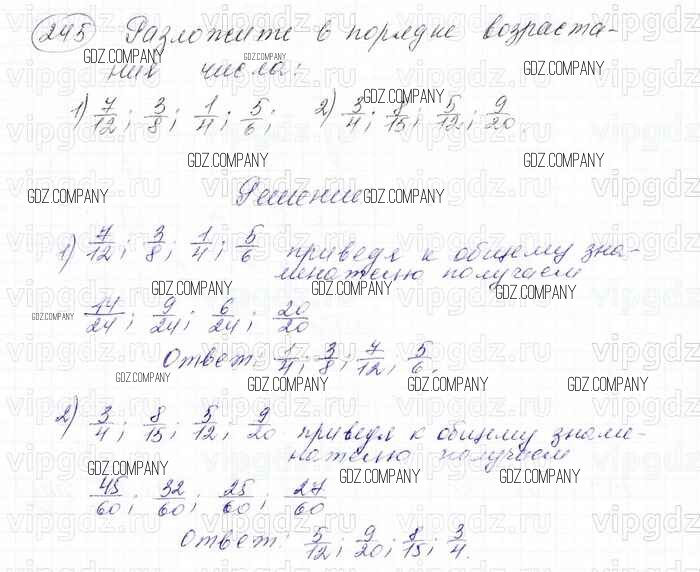 245 Разложите в порядке возраста-
нии числа:
1) 7/12; 3/8; 1/4; 5/6; 2) 3/4; 8/15; 5/12; 9/20.
Решение
1) 7/12; 3/8; 1/4; 5/6 приведя к общему зна-
минателю получаем
14/24; 9/24; 6/24; 20/20
Ответ: 1/4; 3/8; 7/12; 5/6.
2) 3/4; 8/15; 5/12; 9/20 приведя к общему знаме-
нателю получаем
45/60; 32/60; 25/60; 27/60
Ответ: 5/12; 9/20; 8/15; 3/4.
GDZ.COMPANY
vipgdz.ru